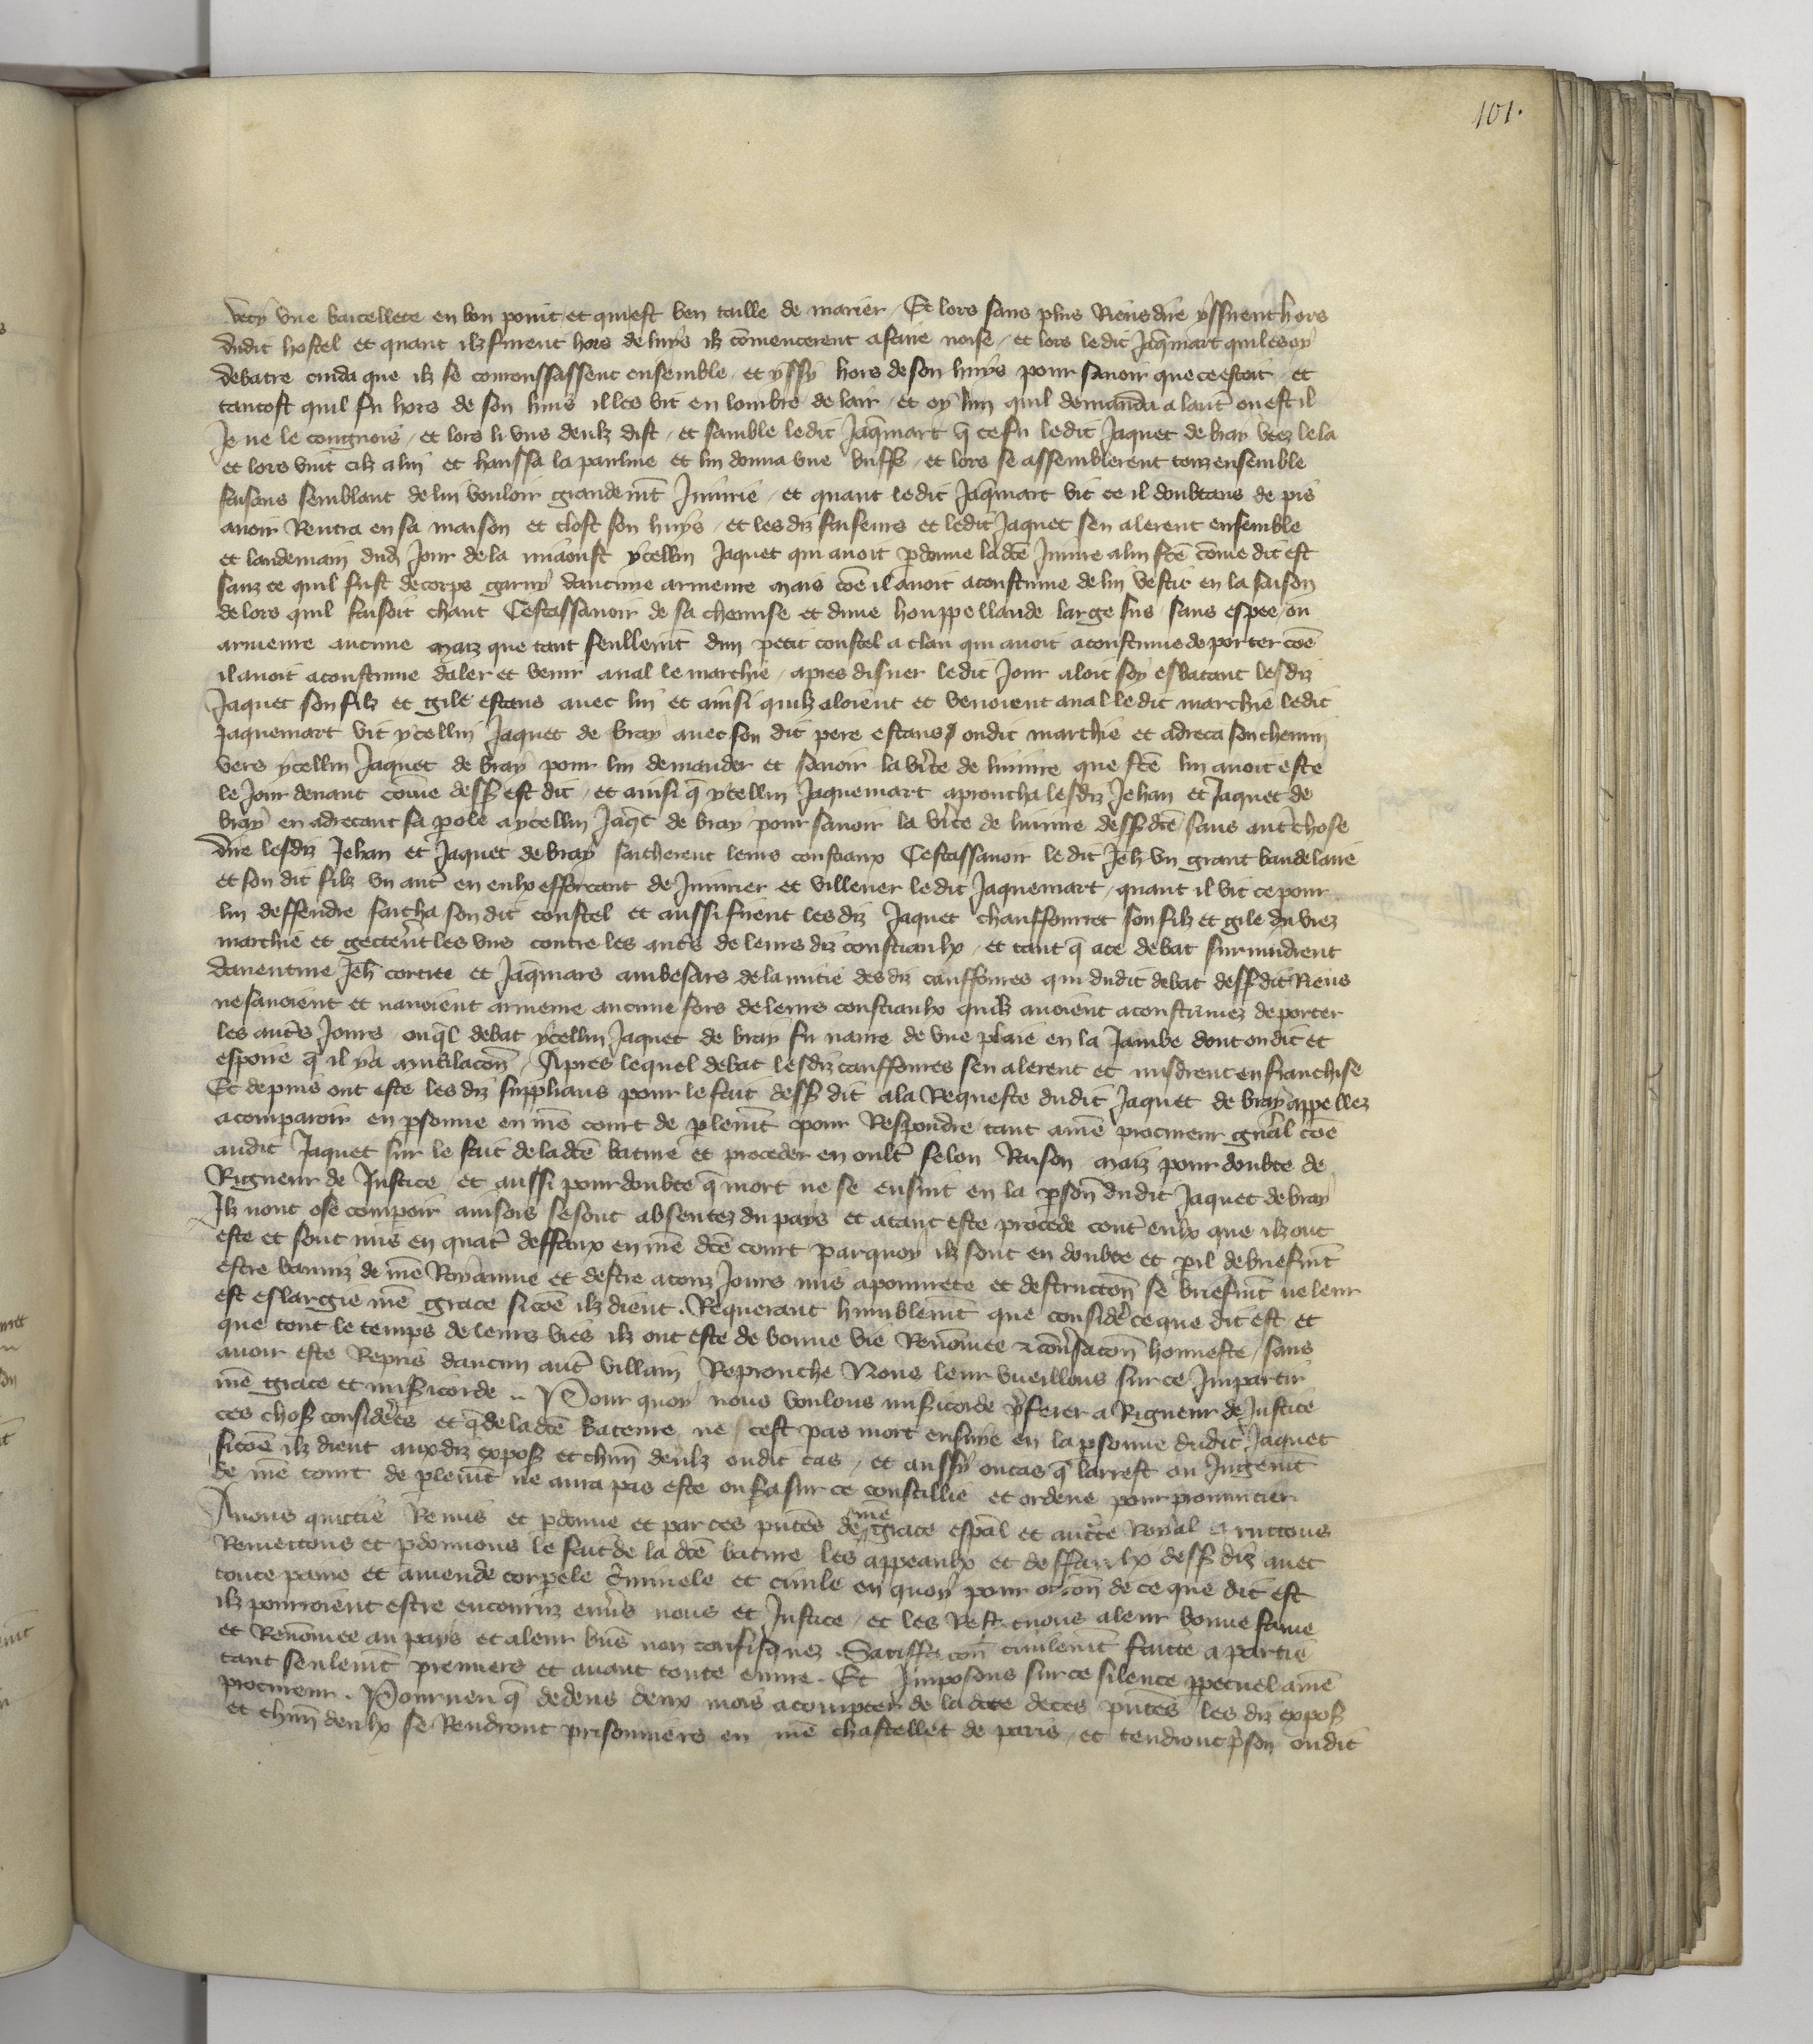 101.
vecy une baicellete en bon point et qui est ben taille de marier / Et lors sans plus Riens dire yssirent hors
dudit hostel et quant ilz furent hors de luys ilz cōmencerent a faire noise / et lors ledit Jaq̄mart qui les oy
debatre cuida que ilz se conroussassent ensemble / et yssy hors de son huys pour savoir que ce estoit / et
tantost quil fu hors de son huis il les vit en lombre de lair / et oy lun quil demanda a laut̄ ou est il
Je ne le congnois / et lors li uns deulz dist / et samble ledit Jaq̄mart q̄ ce fu ledit Jaquet de bray veez le la
et lors vint cilz a lui et haussa la paulme et lui donna une buffe / et lors se assemblerent touz ensemble
faisans semblant de lui vouloir grandemt̄ Injurie / et quant ledit Jaq̄mart vit ce il doubtans de pis
avoir Rentra en sa maison et clost son huys / et les diz faiseurs et ledit Jaquet sen alerent ensemble
et landemain dud Jour de la miaoust ycellui Jaquet qui avoit p̄donne ladc̄e Injure a lui fc̄e cōme dit est
sanz ce quil fust de corps garny daucune armeure mais cōe il avoit acoustume de lui vestir en la saison
de lors quil faisoit chaut Cestassavoir de sa chemise et dune houppellande large sus / sans espee / ou
armeure aucune maiz que tant seullemt̄ dun petit coustel a clau qui avoit acoustume de porter cōe
il avoit acoustume daler et venir aval le marchie / apres disner ledit Jour aloit soy esbatant lesdiz
Jaquet son filz et gile estans avec lui et ainsi quilz aloient et venoient aval ledit marchie ledit
Jaquemart vit ycellui Jaquet de bray avec son dit pere estans ondit marchie et adreca son chemin
vers ycellui Jaquet de bray pour lui demander et savoir la v̄ite de linjure que fc̄e lui avoit este
le Jour devant cōme dess est dit / et ainsi q̄ ycellui Jaquemart aproucha lesdiz Jehan et Jaquet de
bray en adrecant sa p̄ole a ycellui Jaq̄t de bray pour savoir la v̄ite de linjure dessdc̄e sans aut̄ chose
dire lesdiz Jehan et Jaquet de bray sacherent leurs coustiaux Cestassavoir ledit Jeh̄ un grant baudelaire
et son dit filz un aut̄ en eulx efforcant de Injurier et villener ledit Jaquemart / quant il vit ce pour
lui deffendre sacha son dit coustel et aussi firent les diz Jaquet chauffourret son filz et gile du viez
marchie et getterēt les uns contre les aut̄s de leurs diz coustianlx / et tant q̄ a ce debat survindrent
daventure Jeh̄ cortite et Jaq̄mars ambesars de lamitie des diz cauffoures qui dudit debat dessdit Riens
ne savoient et navoient armeure aucune fors de leurs coustianlx quilz avoient acoustumez de porter
les aut̄s Jours ouq̄l debat ycellui Jaquet de bray fu navre de une plaie en la Jambe dont on dit et
espoire q̄ il y a mutilacōn / Apres lequel debat lesdiz cauffoures sen alerent et misdrent en franchise
Et depuis ont este les diz supplians pour le fait dess dit a la Requeste dudit Jaquet de bray appellez
a comparoir en p̄sonne en n̄re court de p̄lemt̄ pour Respondre tant a n̄re procureur gn̄al cōe
audit Jaquet sur le fait de ladc̄e bature et proceder en oult̄ selon Raison mais pour doubte de
Rigueur de Justice / et aussi pour doubte q̄ mort ne se ensuit en la p̄son̄ dudit Jaquet de bray
Ilz nont ose compoir ainsois se sont absentez du pays et a tant este procede cont̄ eulx que ilz ont
este et sont mis en quat̄ deffaux en n̄re dc̄e court parquoy ilz sont en doubte et p̄il de briefmt̄
estre banniz de n̄re Royaume et destre a touz Jours mis a pouvrete et destructōn se briefmt̄ ne leur
est eslargie n̄re grace si cōe ilz dient . Requerant humblemt̄ que consid̄e ce que dit est / et
que tout le temps de leurs vies ilz ont este de bonne vie Renōmee & cōn̄sacōn honneste / sans
avoir este Repris daucun aut̄ villain Reprouche Nous leur vueillons sur ce Impartir
n̄re grace et misicorde .. Pour quoy nous voulons misicorde p̄ferer a Rigueur de Justice
ces chos considēs et q̄ de ladc̄e bateure ne sest pas mort ensuye en la p̄sonne dudit Jaquet
si cōe ilz dient aux diz expos et chūn deulz oudit cas / et aussy ou cas q̄ larrest ou Jugemt̄
de n̄re court de plemt̄ ne aura pas este ou sera sur ce conseillie et ordene pour prononcier
Avons quittie Remis et p̄donne et par ces p̄ntes de n̄re grace esp̄al et auct̄te Royal quictons
Remettons et p̄donnons le fait de la dc̄e bature les appeaulx et deffaulx dess diz avec
toute paine et amende corpele c̄minele et civile en quoy pour occōn de ce que dit est
ilz pourroient estre encouruz env̄s nous et Justice / et les Restituons a leur bonne fame
et Renōmee au pays et a leur biēs non confisquez . Satiffacōn civilemt̄ faicte a partie
tant seulemt̄ premiere et avant toute euvre . Et Imposons sur ce silence ppetuel a n̄re
procureur . Pourveu q̄ dedens deux mois a compter de la date de ces p̄ntes les diz expos
et chūn deulx se Rendront prisonniers en n̄re chastellet de paris / et tendront p̄son oudit